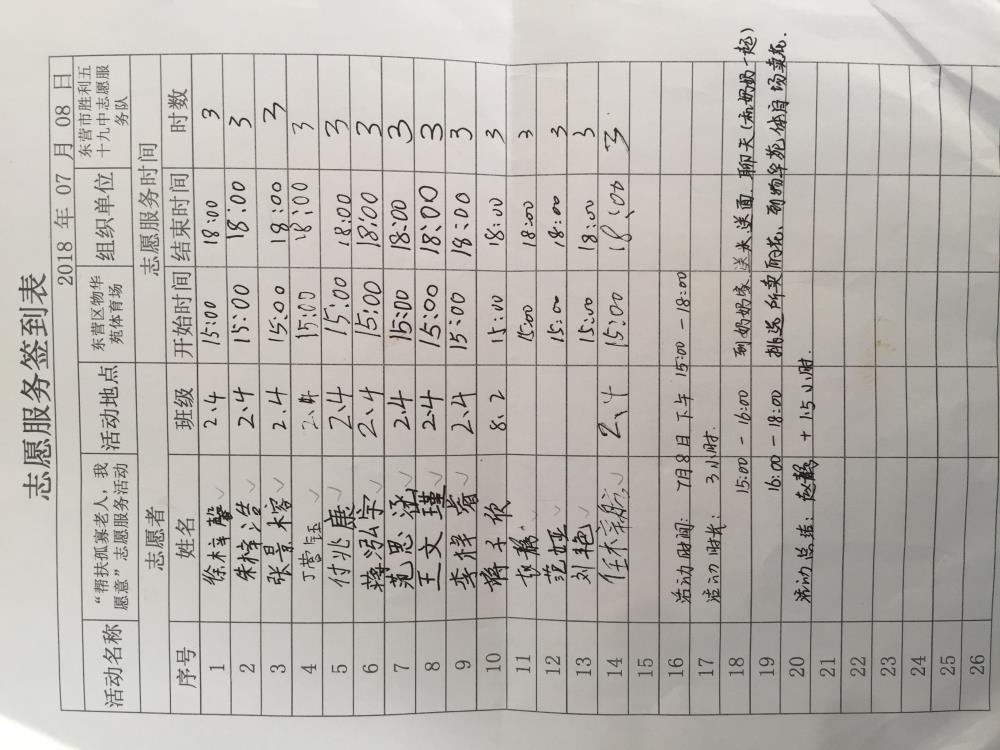 志愿服务签到表
2018 年 07 月 08 日
活动名称 “帮扶孤寡老人，我愿意”志愿服务活动 活动地点 东营区物华苑体育场 组织单位 东营市胜利五十九中志愿服务队
志愿者 志愿服务时间
序号 姓名 班级 开始时间 结束时间 时数
1 徐梓馨 ✓ 2.4 15:00 18:00 3
2 朱梓浩 ✓ 2.4 15:00 18:00 3
3 张景容 ✓ 2.4 15:00 18:00 3
4 丁营钰 ✓ 2.4 15:00 18:00 3
5 付兆康 ✓ 2.4 15:00 18:00 3
6 蒋泓宇 ✓ 2.4 15:00 18:00 3
7 范思 ✓ 2.4 15:00 18:00 3
8 王文瑾 2.4 15:00 18:00 3
9 李梓睿 ✓ 2.4 15:00 18:00 3
10 蒋子欣 8.2 15:00 18:00 3
11 静 15:00 18:00 3
12 范娅 ✓ 15:00 18:00 3
13 刘艳 ✓ 15:00 18:00 3
14 任木 ✓ 2.4 15:00 18:00 3
15
16 活动时间: 7月8日下午 15:00 - 18:00
17 活动时长: 3小时.
18 15:00 - 16:00 到奶奶家、送米、送面、聊天(和奶奶一起)
19 16:00 - 18:00 挑选所卖的花、到物华苑体育场卖花.
20 活动总结: 赵静 + 1.5小时.
21
22
23
24
25
26